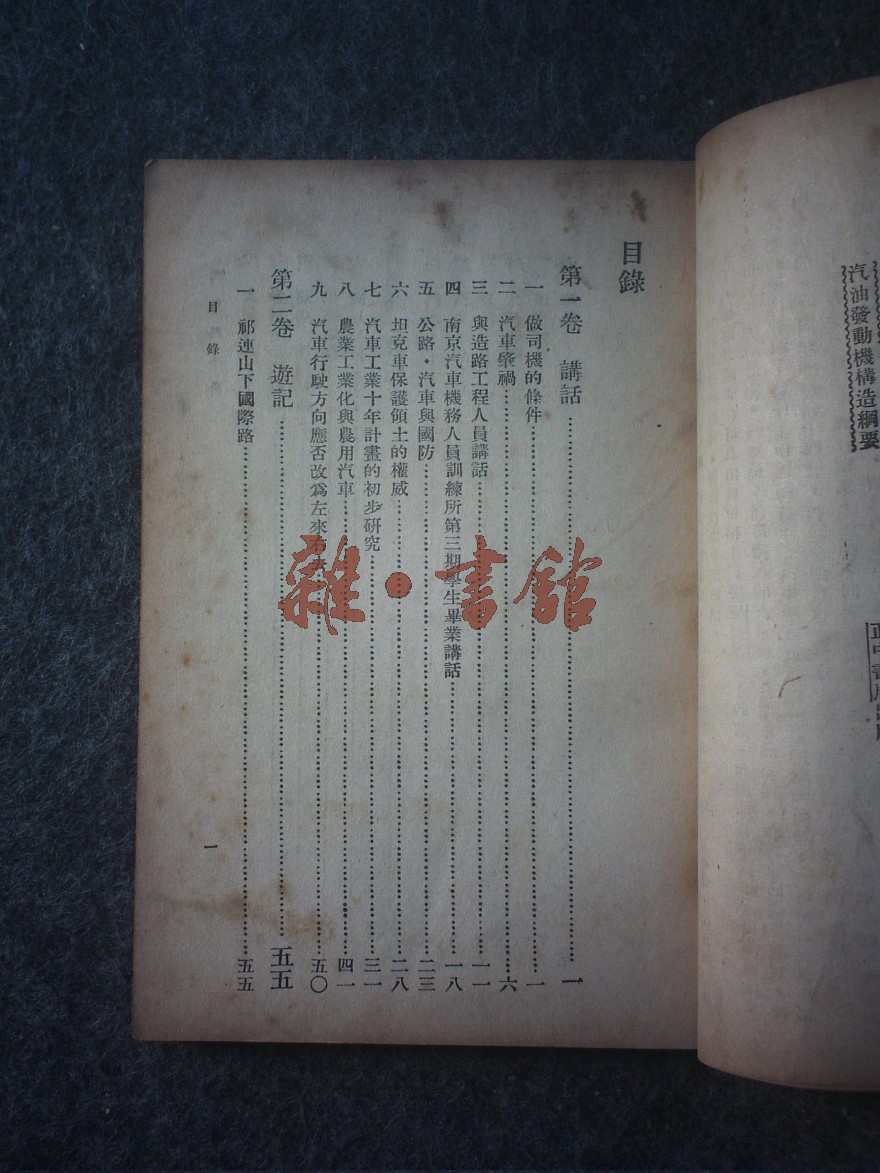 汽油發動機構造綱要
目錄
第一卷 講話……一
一 做司機的條件……一
二 汽車肇禍……六
三 與造路工程人員講話……一一
四 南京汽車機務人員訓練所第三期學生畢業講話……一八
五 公路·汽車與國防……二三
六 坦克車保護領土的權威……二八
七 汽車工業十年計畫的初步研究……三一
八 農業工業化與農用汽車……四一
九 汽車行駛方向應否改爲左來右去……五〇
第二卷 遊記……五五
一 祁連山下國際路……五五
目錄
一
雜·書館